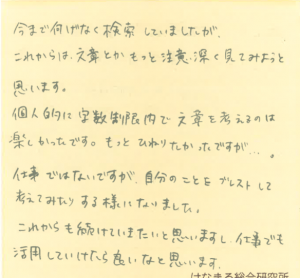 今まで何げなく検索していましたが、
これからは、文章とかもっと注意深く見てみようと
思います。
個人的に字数制限内で文章を考えるのは
楽しかったです。もっとひねりたかったですが…。
仕事ではないですが、自分のことをブレストして
考えてみたりする様になりました。
これからも続けていきたいと思いますし、仕事でも
活用していけたら良いなと思います。
はなまる総合研究所